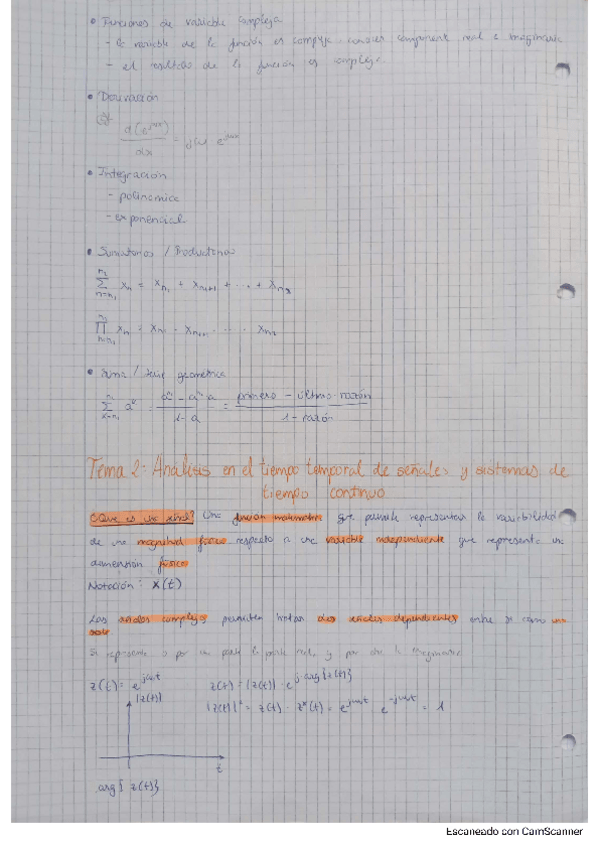 • Funciones de variable compleja
- la variable de la función es compleja componente real e imaginaria
- el resultado de la función es compleja.
• Derivación
d(e^jωx)/dx = jω e^jωx
• Integración
- polinomica
- exponencial
• Sumatorios / Productorios
∑ xn = xn₁ + xn₁+₁ + ... + xn₂
n=n₁
∏ xn = xn₁ · xn₁+₁ · ... · xn₂
n=n₁
• Suma / serie geometrica
∑ aⁿ = = primero - último·razón / 1 - razón
Tema 2: Análisis en el tiempo temporal de señales y sistemas de
tiempo continuo
¿Que es una señal? Una función matemática que permite representar la variabilidad
de una magnitud física respecto a una variable independiente que representa una
dimensión física
Notación: x(t)
Las señales complejas permiten tratar dos señales dependientes entre si como una
sola
Si representa por una parte la parte real y por otra la imaginaria
z(t) = e^jωt z(t) = |z(t)| · e^j·arg{z(t)}
|z(t)| |z(t)|² = z(t) · z*(t) = e^jωt e^-jωt = 1
t
arg{z(t)}
Escaneado con CamScanner